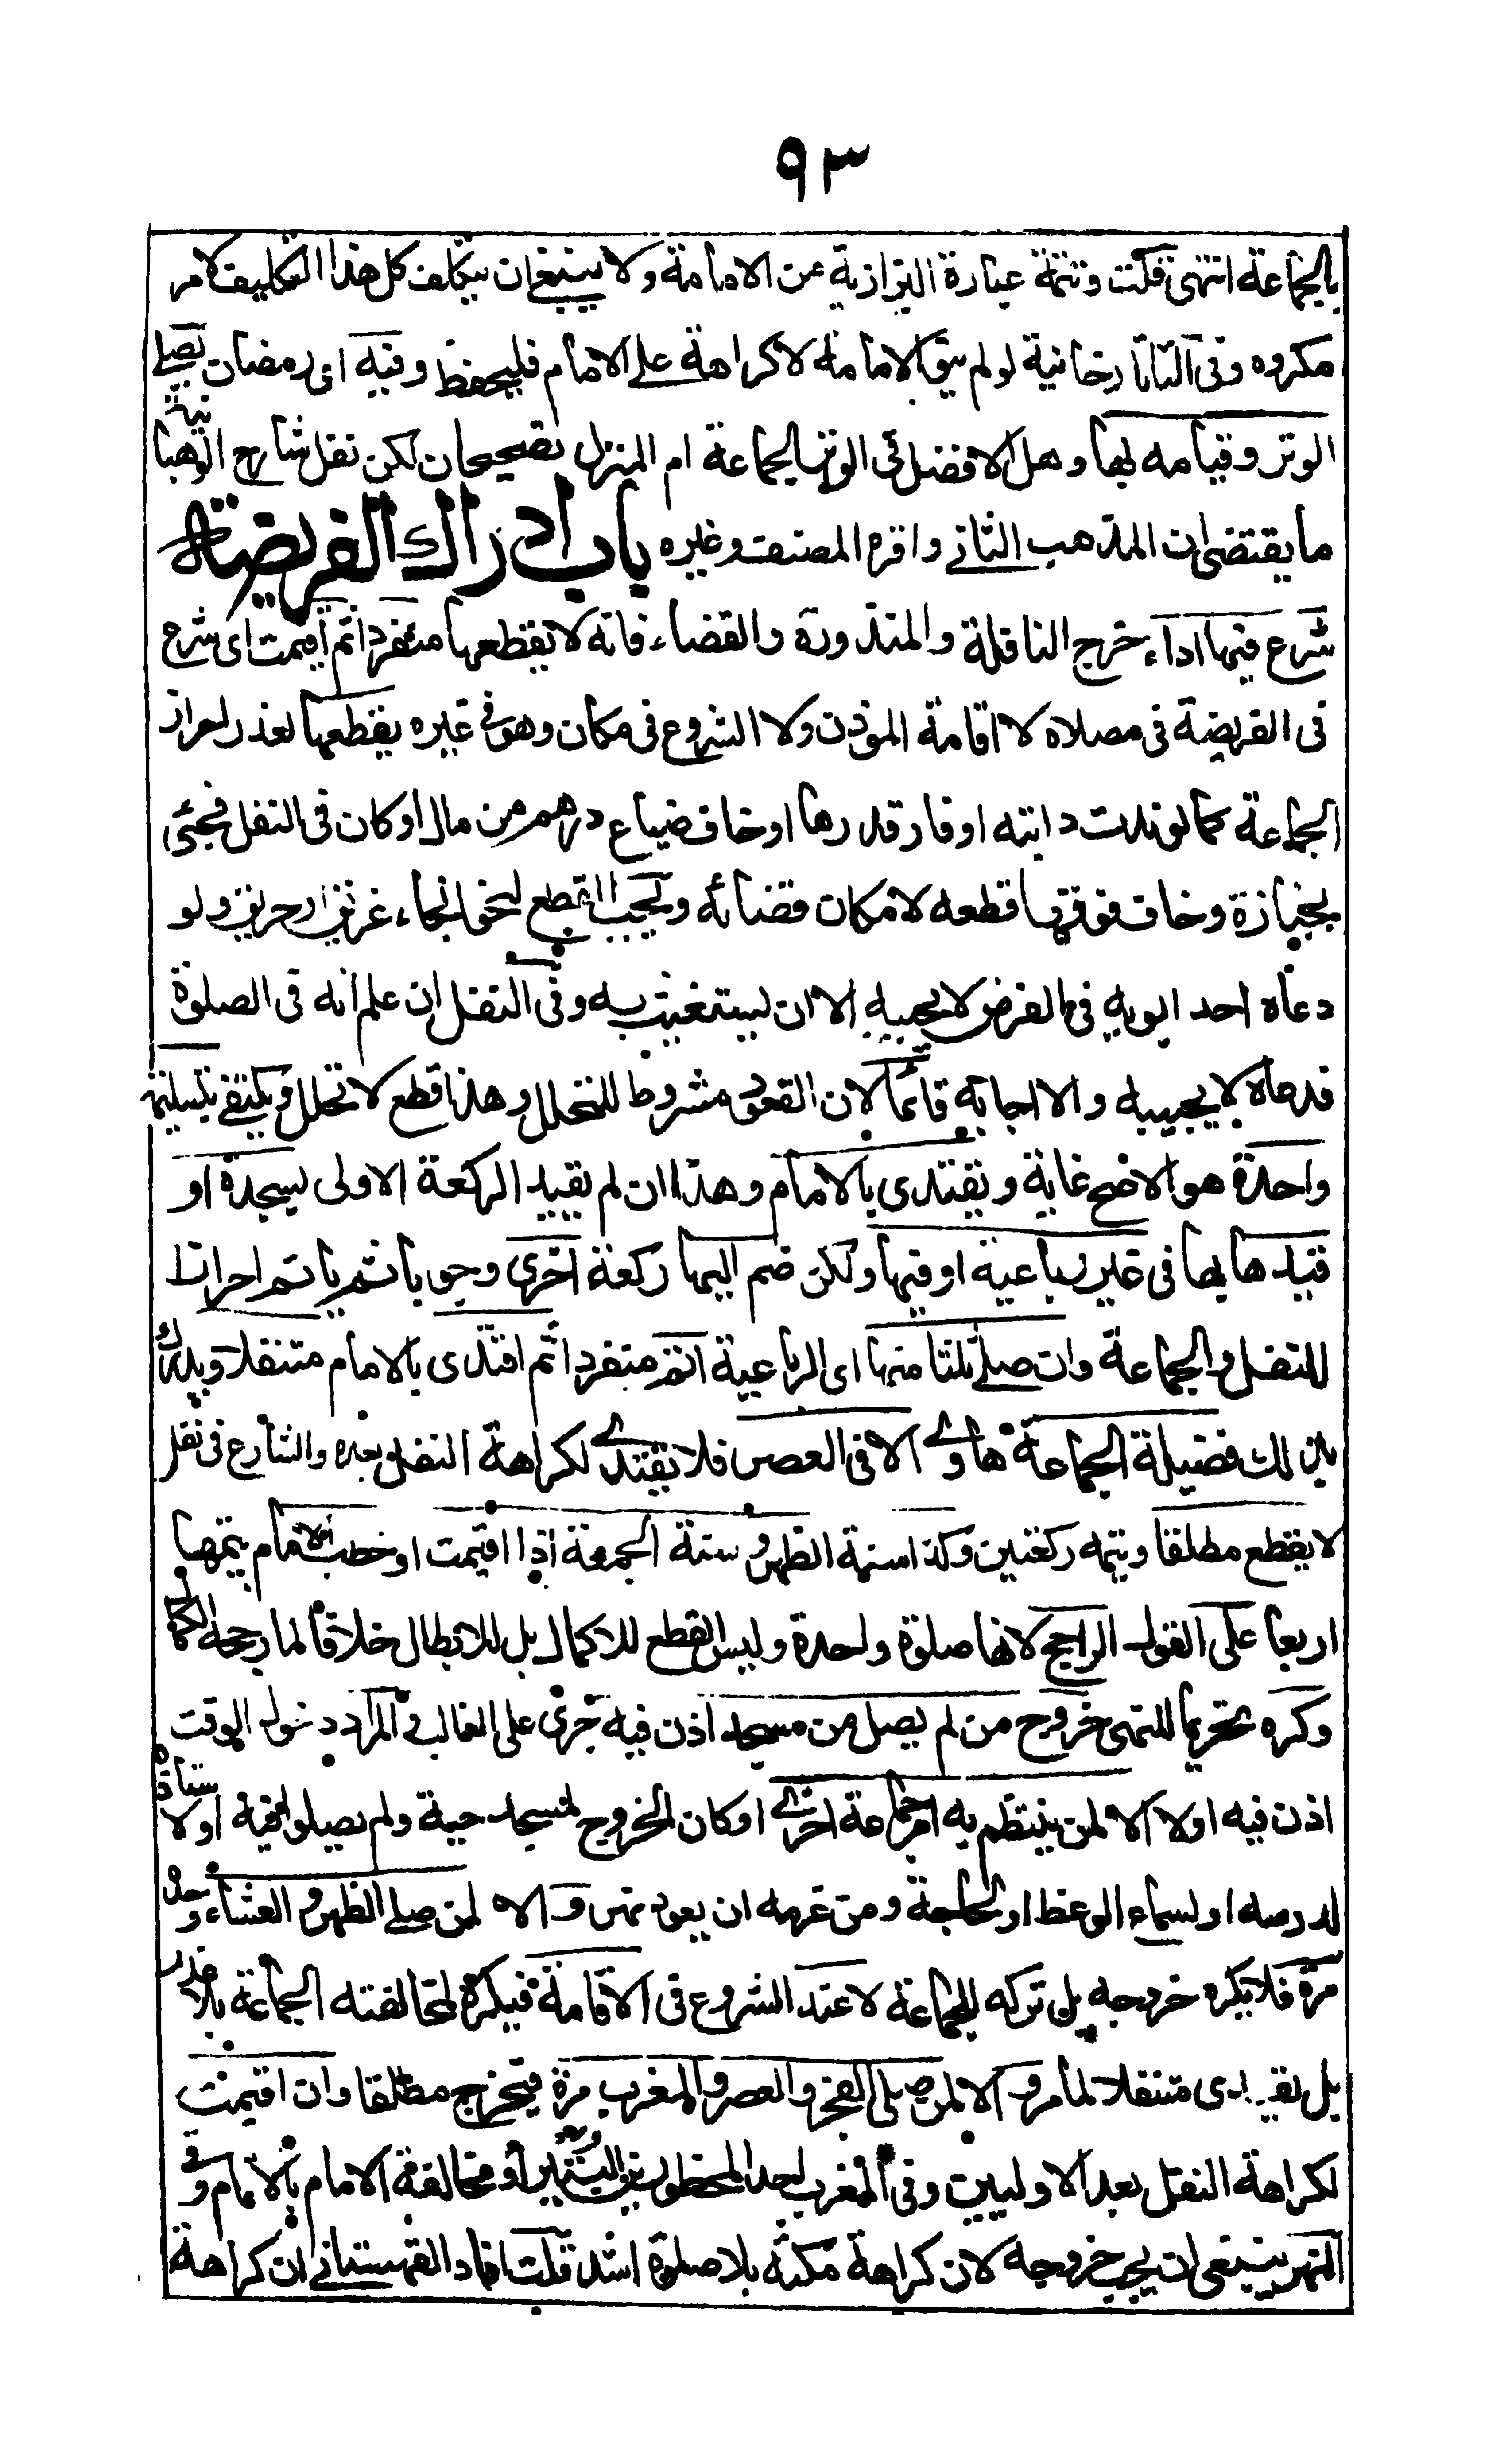 ٩٣
بالجماعة انتهى قلت وتتمة عبارة البزازية عن الامامة ولا ينبغي ان يتكلف كل هذا التكليف لامر
مكروه وفى التاتارخانية لو لم ينو الامامة لا كراهة على الامام فليحفظ وفيه اى رمضان يصلى
الوتر وقيامه بها وهل الافضل فى الوتر الجماعة ام المنزل تصحيحان لكن نقل شارح الوهبانية
ما يقتضى ان المذهب الثانى واقره المصنف وغيره باب ادراك الفريضة
شرع فيها اداء خرج النافلة والمنذورة والقضاء فانه لا يقطعها منفردا ثم اقيمت اى شرع
فى الفريضة فى مصلاه لا اقامة المؤذن ولا الشروع فى مكان وهو فى غيره يقطعها لعذر احراز
الجماعة كما لو ندت دابته او فار قدرها او خاف ضياع درهم من مال او كان فى النفل فجئى
بجنازة وخاف فوتها قطعه لامكان قضائه ويجب القطع لنحو انجاء غريق او حريق ولو
دعاه احد ابويه فى الفرض لا يجيبه الا ان يستغيث به وفى النفل ان علم انه فى الصلوة
فدعاه لا يجيبه والا اجابه قائما لان القعود مشروط للتحلل وهذا قطع لا تحلل ويكتفى بتسليمة
واحدة هو الاصح غاية ويقتدى بالامام وهذا ان لم يقيد الركعة الاولى بسجدة او
قيدها بها فى غير رباعية او فيها ولكن ضم اليها ركعة اخرى وجوبا ثم ياتم احرازا
للنفل والجماعة وان صلى ثلثا منها اى الرباعية اتم منفردا ثم اقتدى بالامام متنفلا ويدرك
بذلك فضيلة الجماعة حاوى الا فى العصر فلا يقتدى لكراهة النفل بعده والشارع فى نفل
لا يقطع مطلقا ويتمه ركعتين وكذا سنة الظهر و سنة الجمعة اذا اقيمت او خطب الامام يتمها
اربعا على القول الراجح لانها صلوة واحدة وليس القطع للاكمال بل للابطال خلافا لما رجحه الكمال
وكره تحريما للنهى خروج من لم يصل من مسجد اذن فيه جرى على الغالب والمراد دخول الوقت
اذن فيه اولا الا لمن ينتظم به امر جماعة اخرى او كان الخروج لمسجد حيه ولم يصلوا فيه او لاستاذه
لدرسه او لسماع الوعظ او لحاجة ومن عزمه ان يعود نهر و الا لمن صلى الظهر و العشاء وحده
مرة فلا يكره خروجه بل تركه للجماعة لا عند الشروع فى الاقامة فيكره لمخالفته الجماعة بلا عذر
بل يقتدى متنفلا لما مر و الا لمن صلى الفجر والعصر والمغرب مرة فيخرج مطلقا وان اقيمت
لكراهة النفل بعد الاوليين وفى المغرب احد المحظورين البتيراء او مخالفة الامام بالاتمام وفى
النهر ينبغى ان يجب خروجه لان كراهة مكثه بلا صلوة اشد قلت افاد القهستانى ان كراهة